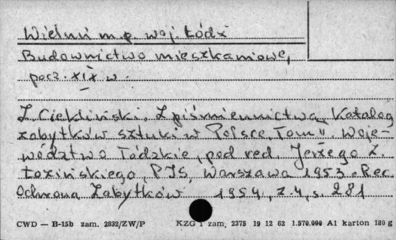 Wieluń m.p. woj. Łódź
Budownictwo mieszkaniowe,
pocz. XIX w.
Z. Ciekliński, Z piśmiennictwa, Katalog
zabytków sztuki w Polsce, Tom II, woje-
wództwo Łódzkie, pod red. Jerzego Z.
Łozińskiego, PIS, Warszawa 1953. Rec.
Ochrona Zabytków 1954, z. 4, s. 281
CWD — B-15b zam. 2832/ZW/P KZG 1 zam. 2375 19 12 62 1.570.000 A1 karton 180 g